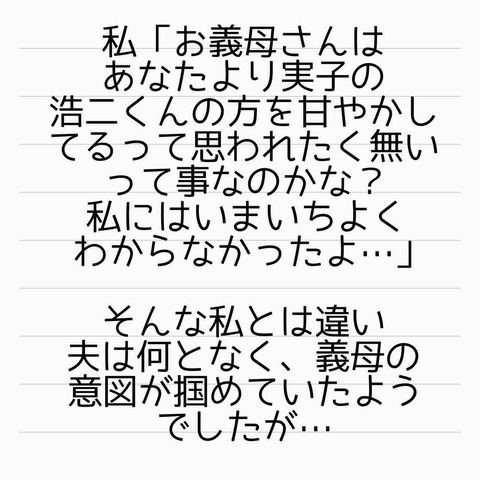 私「お義母さんは
あなたより実子の
浩二くんの方を甘やかし
てるって思われたく無い
って事なのかな？
私にはいまいちよく
わからなかったよ…」
そんな私とは違い
夫は何となく、義母の
意図が掴めていたよう
でしたが…